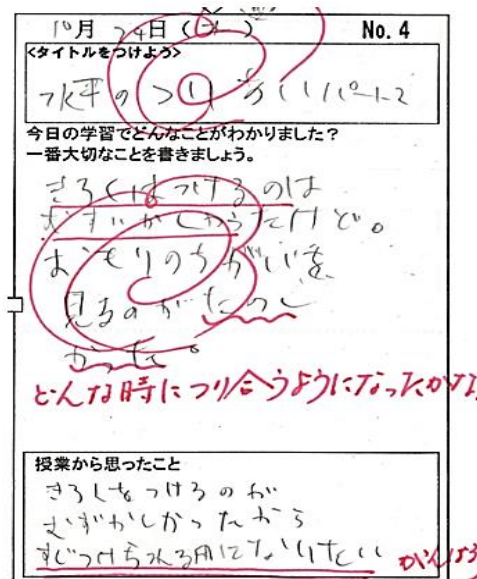 10月24日( )
No. 4
<タイトルをつけよう>
水平のつりあいパート2
今日の学習でどんなことがわかりました?
一番大切なことを書きましょう。
きろくはつけるのは
むずかしかったけど。
おもりのちがいを
見るのがたのし
かった。
どんな時につり合うようになったかな
授業から思ったこと
きろくをつけるのが
むずかしかったから
つけられる用になりたい
がんばろ